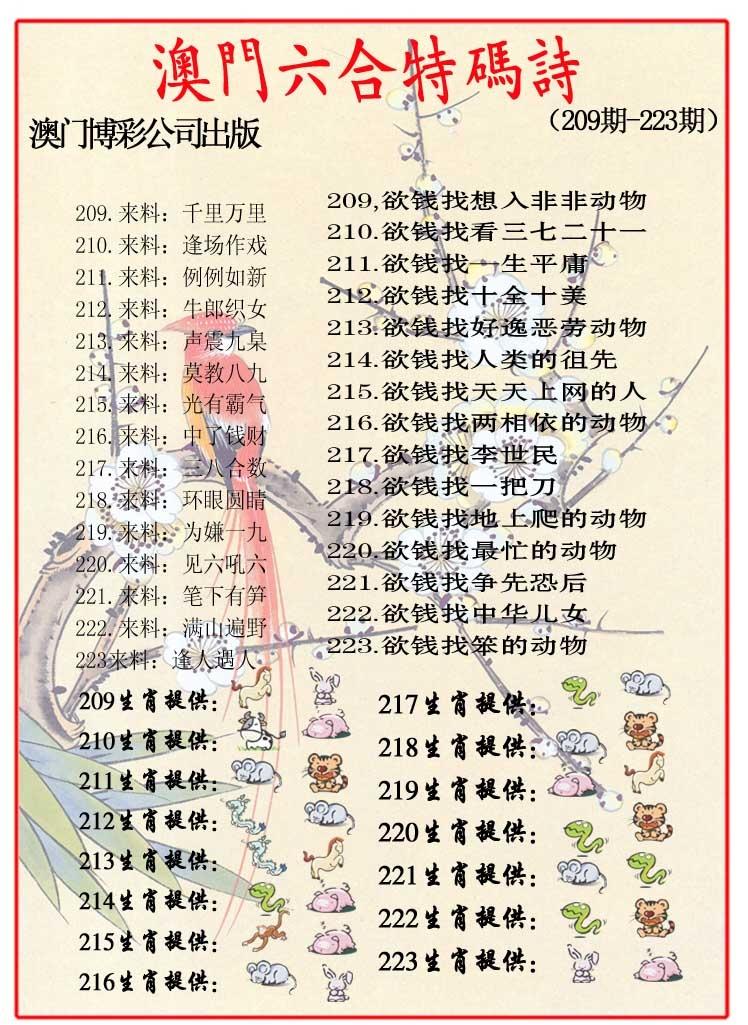 澳門六合特碼詩
澳门博彩公司出版
（209期-223期）
209.来料：千里万里
210.来料：逢场作戏
211.来料：例例如新
212.来料：牛郎织女
213.来料：声震九臬
214.来料：莫教八九
215.来料：光有霸气
216.来料：中了钱财
217.来料：三八合数
218.来料：环眼圆睛
219.来料：为嫌一九
220.来料：见六吼六
221.来料：笔下有笋
222.来料：满山遍野
223来料：逢人遇人
209,欲钱找想入非非动物
210.欲钱找看三七二十一
211.欲钱找一生平庸
212.欲钱找十全十美
213.欲钱找好逸恶劳动物
214.欲钱找人类的徂先
215.欲钱找天天上网的人
216.欲钱找两相依的动物
217.欲钱找李世民
218.欲钱找一把刀
219.欲钱找地上爬的动物
220.欲钱找最忙的动物
221.欲钱找争先恐后
222.欲钱找中华儿女
223.欲钱找笨的动物
209生肖提供：
210生肖提供：
211生肖提供：
212生肖提供：
213生肖提供：
214生肖提供：
215生肖提供：
216生肖提供：
217生肖提供：
218生肖提供：
219生肖提供：
220生肖提供：
221生肖提供：
222生肖提供：
223生肖提供：